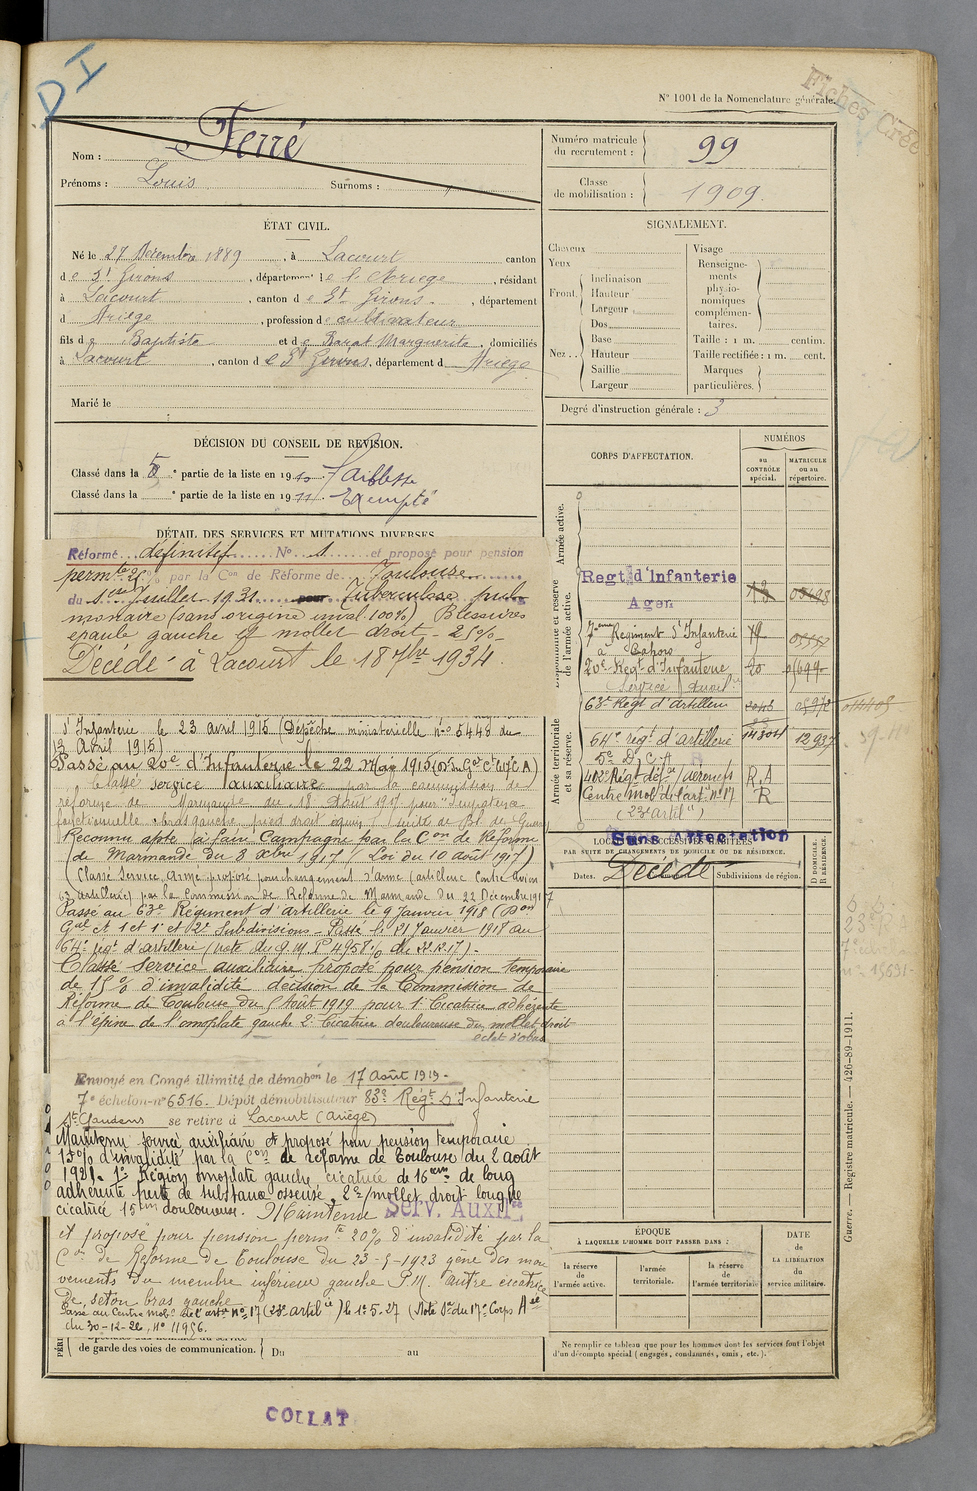 DI
Fiches Créé
N° 1001 de la Nomenclature générale.
Nom : Ferré
Prénoms : Louis Surnoms :
Numéro matricule du recrutement : 99
Classe de mobilisation : 1909.
ÉTAT CIVIL.
Né le 27 Décembre 1889, à Lacourt canton
de St Girons, département de l'Ariège, résidant
à Lacourt, canton de St Girons, département
d Ariège, profession de cultivateur
fils de Baptiste et de Marguerite, domiciliés
à Lacourt, canton de St Girons, département d Ariège
Marié le
SIGNALEMENT.
Cheveux
Yeux
Front. Inclinaison
Hauteur
Largeur
Dos
Nez... Base
Hauteur
Saillie
Largeur
Visage
Renseignements physionomiques complémentaires.
Taille : 1 m. centim.
Taille rectifiée : 1 m. cent.
Marques particulières.
Degré d'instruction générale : 3
DÉCISION DU CONSEIL DE REVISION.
Classé dans la 5e partie de la liste en 1910 faiblesse
Classé dans la e partie de la liste en 1911 Exempté
DÉTAIL DES SERVICES ET MUTATIONS DIVERSES
Réformé définitif N° 1 et proposé pour pension
permte 25% par la Con de Réforme de Toulouse
du 1er Juillet 1931 pour Tuberculose pul-
monaire (sans origine inval. 100%) Blessures
épaule gauche et mollet droit - 25%-
Décédé à Lacourt le 18 7bre 1934.
d'Infanterie le 23 avril 1915 (Dépêche ministérielle n° 5448 du
13 Avril 1915)
Passé au 20e d'Infanterie le 22 Mai 1915
Classé service auxiliaire par la commission de
réforme de Marmande du 18 Août 1917 pour
Reconnu apte à faire Campagne par la Con de Réforme
de Marmande du 3 8bre 1917 (Loi du 10 août 1917)
Classé Service Armé proposé pour changement d'arme (artillerie
63 artillerie) par la Commission de Réforme de Marmande du 22 Décembre 1917
Passé au 63e Régiment d'artillerie le 9 Janvier 1918
Gal et 1e et 2e Subdivisions - Passé le 21 Janvier 1918 au
64e régt d'artillerie
Classé service auxiliaire proposé pour pension temporaire
de 15% d'invalidité décision de la Commission de
Réforme de Toulouse du 5 Août 1919 pour 1° Cicatrice adhérente
à l'épine de l'omoplate gauche 2° Cicatrice douloureuse du mollet droit
éclat d'obus
Envoyé en Congé illimité de démobon le 17 août 1919.
7e échelon n° 6516. Dépôt démobilisateur 83e Régt d'Infanterie
St Gaudens se retire à Lacourt (Ariège)
Maintenu service auxiliaire et proposé pour pension temporaire
15% d'invalidité par la Con de réforme de Toulouse du 2 août
1921. 1° Région omoplate gauche, cicatrice de 16cm de long
adhérente perte de substance osseuse. 2° mollet droit longue
cicatrice 15cm douloureuse. Maintenu Serv. Auxre
et proposé pour pension permte 20% d'invalidité par la
Con de Réforme de Toulouse du 23-5-1923 gêne des mou
vements du membre inférieur gauche P.M. autre cicatrice
de séton bras gauche
Passé au Centre Mobr de l'artie n° 17 (23e artilie) le 1-5-27 (Note du 17e Corps
du 30-12-26, n° 11956.
de garde des voies de communication. Du au
CORPS D'AFFECTATION.
NUMÉROS
au CONTRÔLE spécial.
MATRICULE ou au répertoire.
Armée active.
Disponibilité et réserve de l'armée active.
Régt d'Infanterie
Agen
7eme Régiment d'Infanterie
à Cahors
20e Régt d'Infanterie 20
Service Auxil.
63e Régt d'artillerie
Armée territoriale et sa réserve.
64e régt d'artillerie 12937
5e D.C.A
Régt déf. R.A
Centre Mobr de l'art. n° 17 R
(23e artil)
Sans Affectation
LOCALITÉS SUCCESSIVES HABITÉES
PAR SUITE DE CHANGEMENTS DE DOMICILE OU DE RÉSIDENCE.
Dates. Subdivisions de région.
D DOMICILE. R RÉSIDENCE.
Décédé
ÉPOQUE
À LAQUELLE L'HOMME DOIT PASSER DANS :
la réserve de l'armée active.
l'armée territoriale.
la réserve de l'armée territoriale
DATE de LA LIBÉRATION du service militaire.
Ne remplir ce tableau que pour les hommes dont les services font l'objet
d'un décompte spécial (engagés, condamnés, omis, etc.).
Guerre. — Registre matricule. — 426-89-1911.
COLLAT